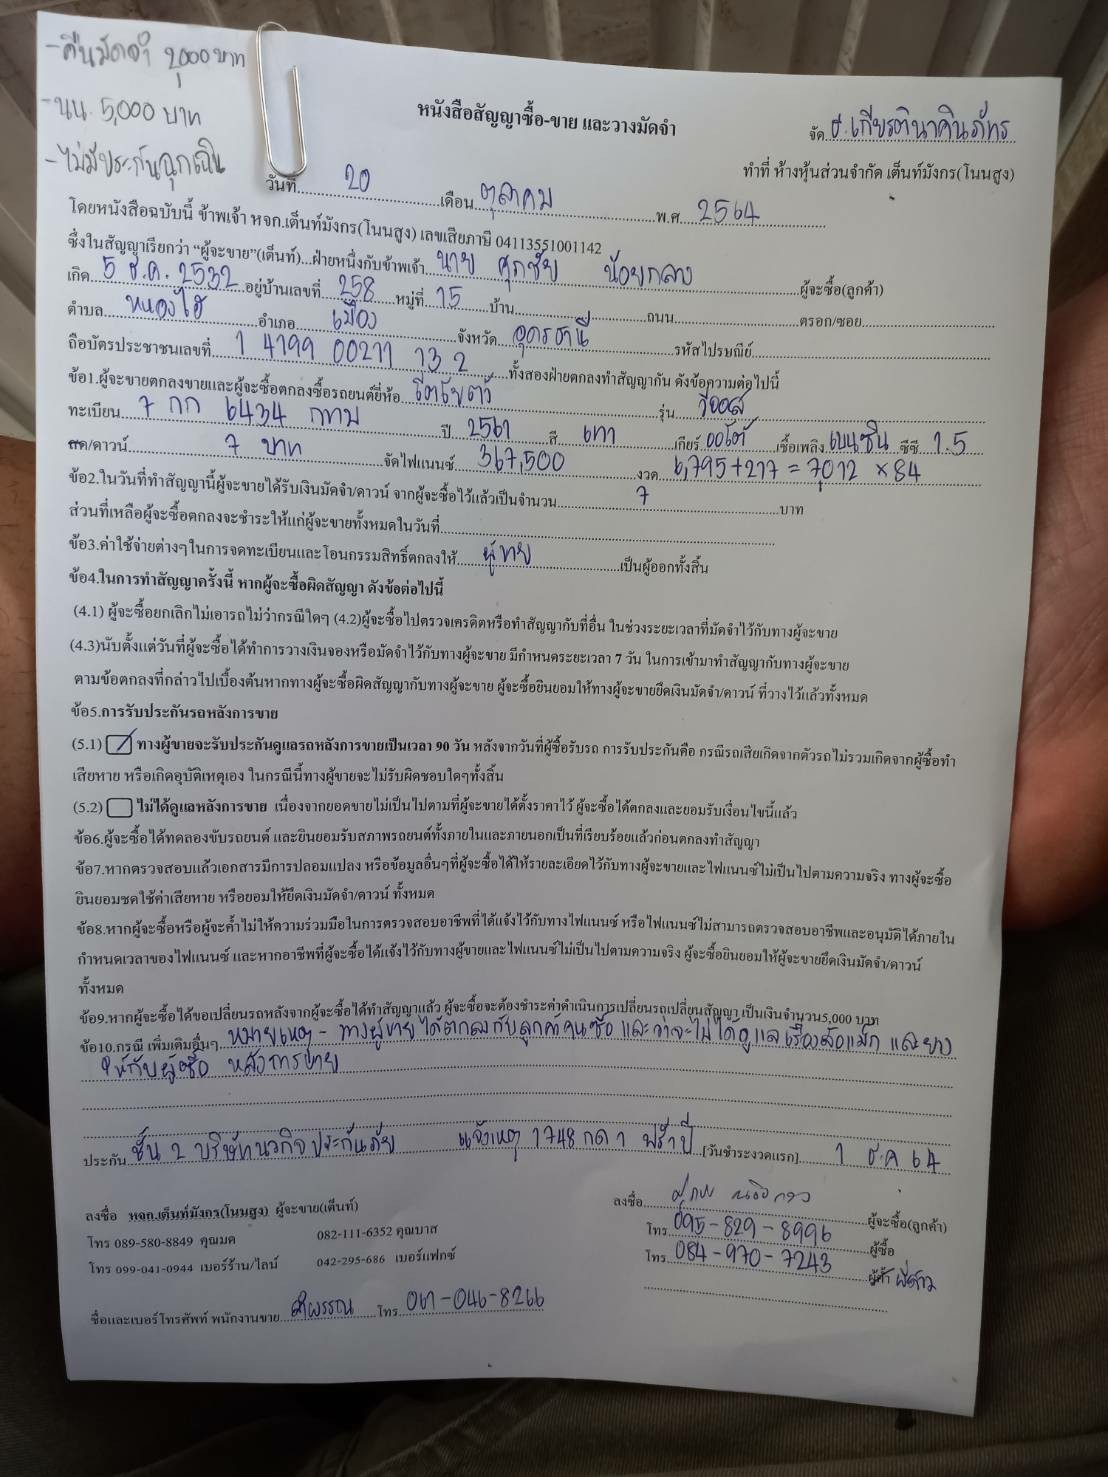 -คืนมัดจำ 2,000 บาท
-นน. 5,000 บาท
-ไม่มีประกันฉุกเฉิน
หนังสือสัญญาซื้อ-ขาย และวางมัดจำ
จัด ธ.เกียรตินาคินภัทร
ทำที่ ห้างหุ้นส่วนจำกัด เต็นท์มังกร(โนนสูง)
วันที่ 20 เดือน ตุลาคม พ.ศ. 2564
โดยหนังสือฉบับนี้ ข้าพเจ้า หจก.เต็นท์มังกร(โนนสูง) เลขเสียภาษี 04113551001142
ซึ่งในสัญญาเรียกว่า “ผู้จะขาย”(เต็นท์)...ฝ่ายหนึ่งกับข้าพเจ้า นาย ศุภชัย น้อยกลาง ผู้จะซื้อ(ลูกค้า)
เกิด 5 ธ.ค. 2532 อยู่บ้านเลขที่ 258 หมู่ที่ 15 บ้าน ถนน ตรอก/ซอย
ตำบล หนองไฮ อำเภอ เมือง จังหวัด อุดรธานี รหัสไปรษณีย์
ถือบัตรประชาชนเลขที่ 1 4199 00211 13 2 ทั้งสองฝ่ายตกลงทำสัญญากัน ดังข้อความต่อไปนี้
ข้อ1.ผู้จะขายตกลงขายและผู้จะซื้อตกลงซื้อรถยนต์ยี่ห้อ โตโยต้า รุ่น วีออส
ทะเบียน 7 กก 6434 กทม ปี 2561 สี เทา เกียร์ ออโต้ เชื้อเพลิง เบนซิน ซีซี 1.5
สด/ดาวน์ 7 บาท จัดไฟแนนซ์ 367,500 งวด 6,795+217 = 7,012 × 84
ข้อ2.ในวันที่ทำสัญญานี้ผู้จะขายได้รับเงินมัดจำ/ดาวน์ จากผู้จะซื้อไว้แล้วเป็นจำนวน 7 บาท
ส่วนที่เหลือผู้จะซื้อตกลงจะชำระให้แก่ผู้จะขายทั้งหมดในวันที่
ข้อ3.ค่าใช้จ่ายต่างๆในการจดทะเบียนและโอนกรรมสิทธิ์ตกลงให้ ผู้ขาย เป็นผู้ออกทั้งสิ้น
ข้อ4.ในการทำสัญญาครั้งนี้ หากผู้จะซื้อผิดสัญญา ดังข้อต่อไปนี้
(4.1) ผู้จะซื้อยกเลิกไม่เอารถไม่ว่ากรณีใดๆ (4.2)ผู้จะซื้อไปตรวจเครดิตหรือทำสัญญากับที่อื่น ในช่วงระยะเวลาที่มัดจำไว้กับทางผู้จะขาย
(4.3)นับตั้งแต่วันที่ผู้จะซื้อได้ทำการวางเงินจองหรือมัดจำไว้กับทางผู้จะขาย มีกำหนดระยะเวลา 7 วัน ในการเข้ามาทำสัญญากับทางผู้จะขาย
ตามข้อตกลงที่กล่าวไปเบื้องต้นหากทางผู้จะซื้อผิดสัญญากับทางผู้จะขาย ผู้จะซื้อยินยอมให้ทางผู้จะขายยึดเงินมัดจำ/ดาวน์ ที่วางไว้แล้วทั้งหมด
ข้อ5.การรับประกันรถหลังการขาย
(5.1) ทางผู้ขายจะรับประกันดูแลรถหลังการขายเป็นเวลา 90 วัน หลังจากวันที่ผู้ซื้อรับรถ การรับประกันคือ กรณีรถเสียเกิดจากตัวรถไม่รวมเกิดจากผู้ซื้อทำ
เสียหาย หรือเกิดอุบัติเหตุเอง ในกรณีนี้ทางผู้ขายจะไม่รับผิดชอบใดๆทั้งสิ้น
(5.2) ไม่ได้ดูแลหลังการขาย เนื่องจากยอดขายไม่เป็นไปตามที่ผู้จะขายได้ตั้งราคาไว้ ผู้จะซื้อได้ตกลงและยอมรับเงื่อนไขนี้แล้ว
ข้อ6.ผู้จะซื้อได้ทดลองขับรถยนต์ และยินยอมรับสภาพรถยนต์ทั้งภายในและภายนอกเป็นที่เรียบร้อยแล้วก่อนตกลงทำสัญญา
ข้อ7.หากตรวจสอบแล้วเอกสารมีการปลอมแปลง หรือข้อมูลอื่นๆที่ผู้จะซื้อได้ให้รายละเอียดไว้กับทางผู้จะขายและไฟแนนซ์ไม่เป็นไปตามความจริง ทางผู้จะซื้อ
ยินยอมชดใช้ค่าเสียหาย หรือยอมให้ยึดเงินมัดจำ/ดาวน์ ทั้งหมด
ข้อ8.หากผู้จะซื้อหรือผู้จะค้ำไม่ให้ความร่วมมือในการตรวจสอบอาชีพที่ได้แจ้งไว้กับทางไฟแนนซ์ หรือไฟแนนซ์ไม่สามารถตรวจสอบอาชีพและอนุมัติได้ภายใน
กำหนดเวลาของไฟแนนซ์ และหากอาชีพที่ผู้จะซื้อได้แจ้งไว้กับทางผู้ขายและไฟแนนซ์ไม่เป็นไปตามความจริง ผู้จะซื้อยินยอมให้ผู้จะขายยึดเงินมัดจำ/ดาวน์
ทั้งหมด
ข้อ9.หากผู้จะซื้อได้ขอเปลี่ยนรถหลังจากผู้จะซื้อได้ทำสัญญาแล้ว ผู้จะซื้อจะต้องชำระค่าดำเนินการเปลี่ยนรถเปลี่ยนสัญญา เป็นเงินจำนวน5,000 บาท
ข้อ10.กรณี เพิ่มเติมอื่นๆ หมายเหตุ - ทางผู้ขายได้ตกลงกับลูกค้าคนซื้อ และว่าจะไม่ได้ดูแลเรื่องล้อแม็ก และยาง
ให้กับผู้ซื้อ หลังการขาย
ประกัน ชั้น 2 บริษัทนวกิจประกันภัย แจ้งเหตุ 1748 กด 1 ฟรี 1 ปี [วันชำระงวดแรก] 1 ธ.ค 64
ลงชื่อ หจก.เต็นท์มังกร(โนนสูง) ผู้จะขาย(เต็นท์)
ลงชื่อ ผู้จะซื้อ(ลูกค้า)
โทร 089-580-8849 คุณมด 082-111-6352 คุณบาส
โทร 095-829-8996 ผู้ซื้อ
โทร 099-041-0944 เบอร์ร้าน/ไลน์ 042-295-686 เบอร์แฟกซ์
โทร 084-970-7243 ผู้ค้ำ
ชื่อและเบอร์โทรศัพท์ พนักงานขาย โทร 061-046-8266